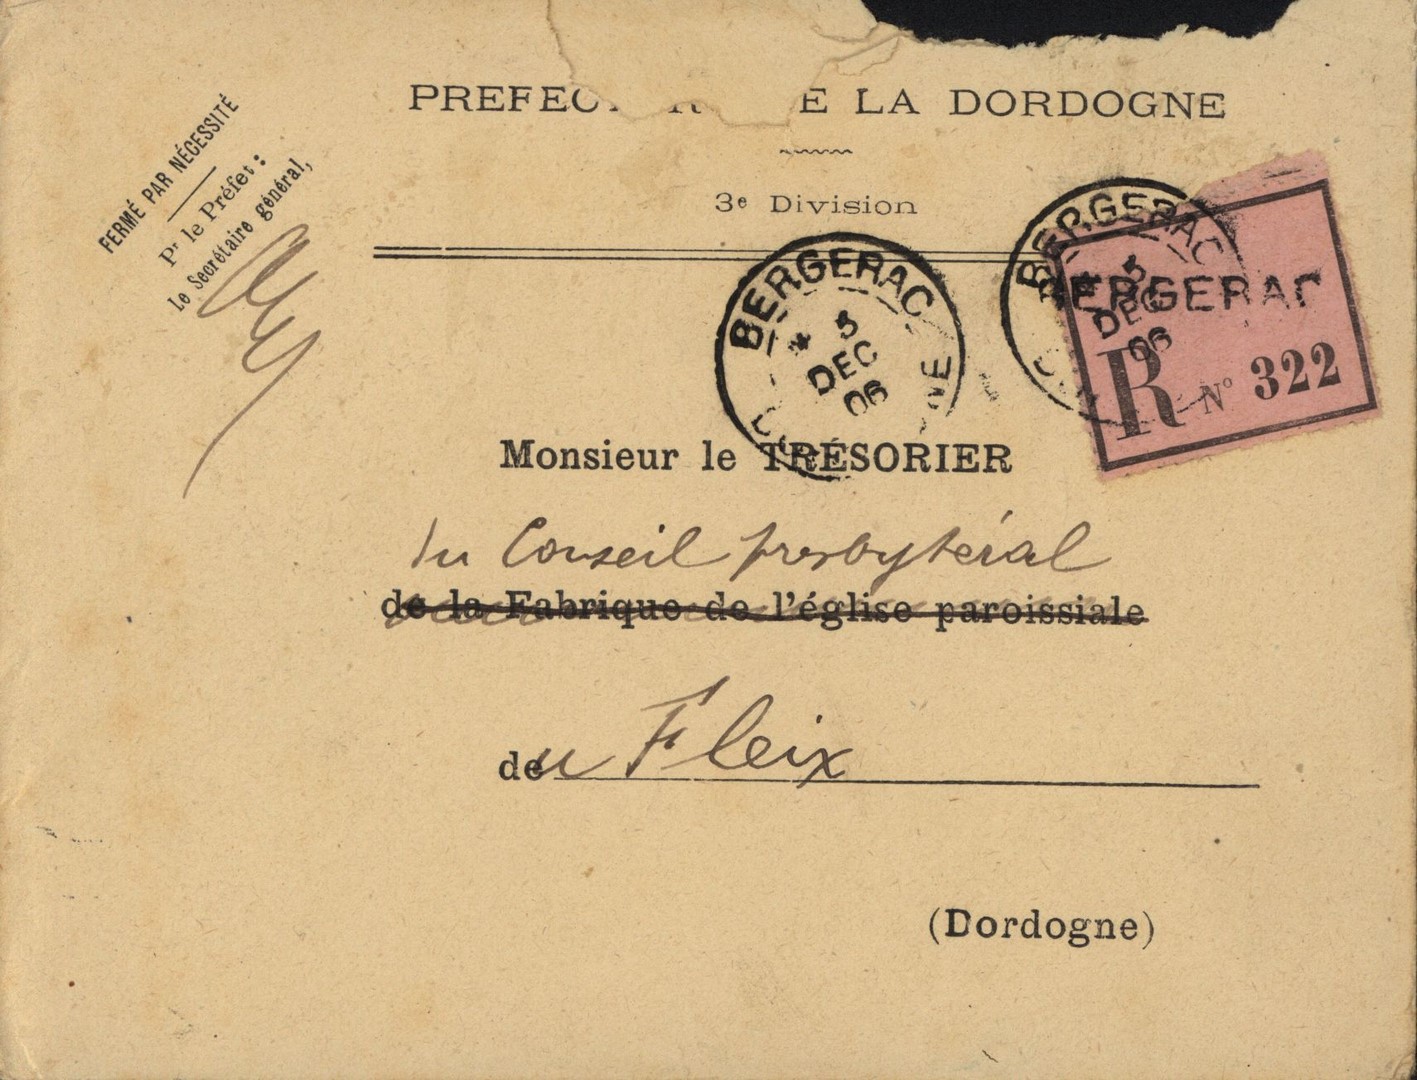 PREFEC E LA DORDOGNE
3e Division
FERMÉ PAR NÉCESSITÉ
Pr le Préfet:
Le Secrétaire général,
BERGERAC
5
DEC
06
BERGERAC
5
DEC
06
BERGERAC
R No 322
Monsieur le TRÉSORIER
du Conseil presbytéral
de la Fabrique de l'église paroissiale
du Fleix
(Dordogne)